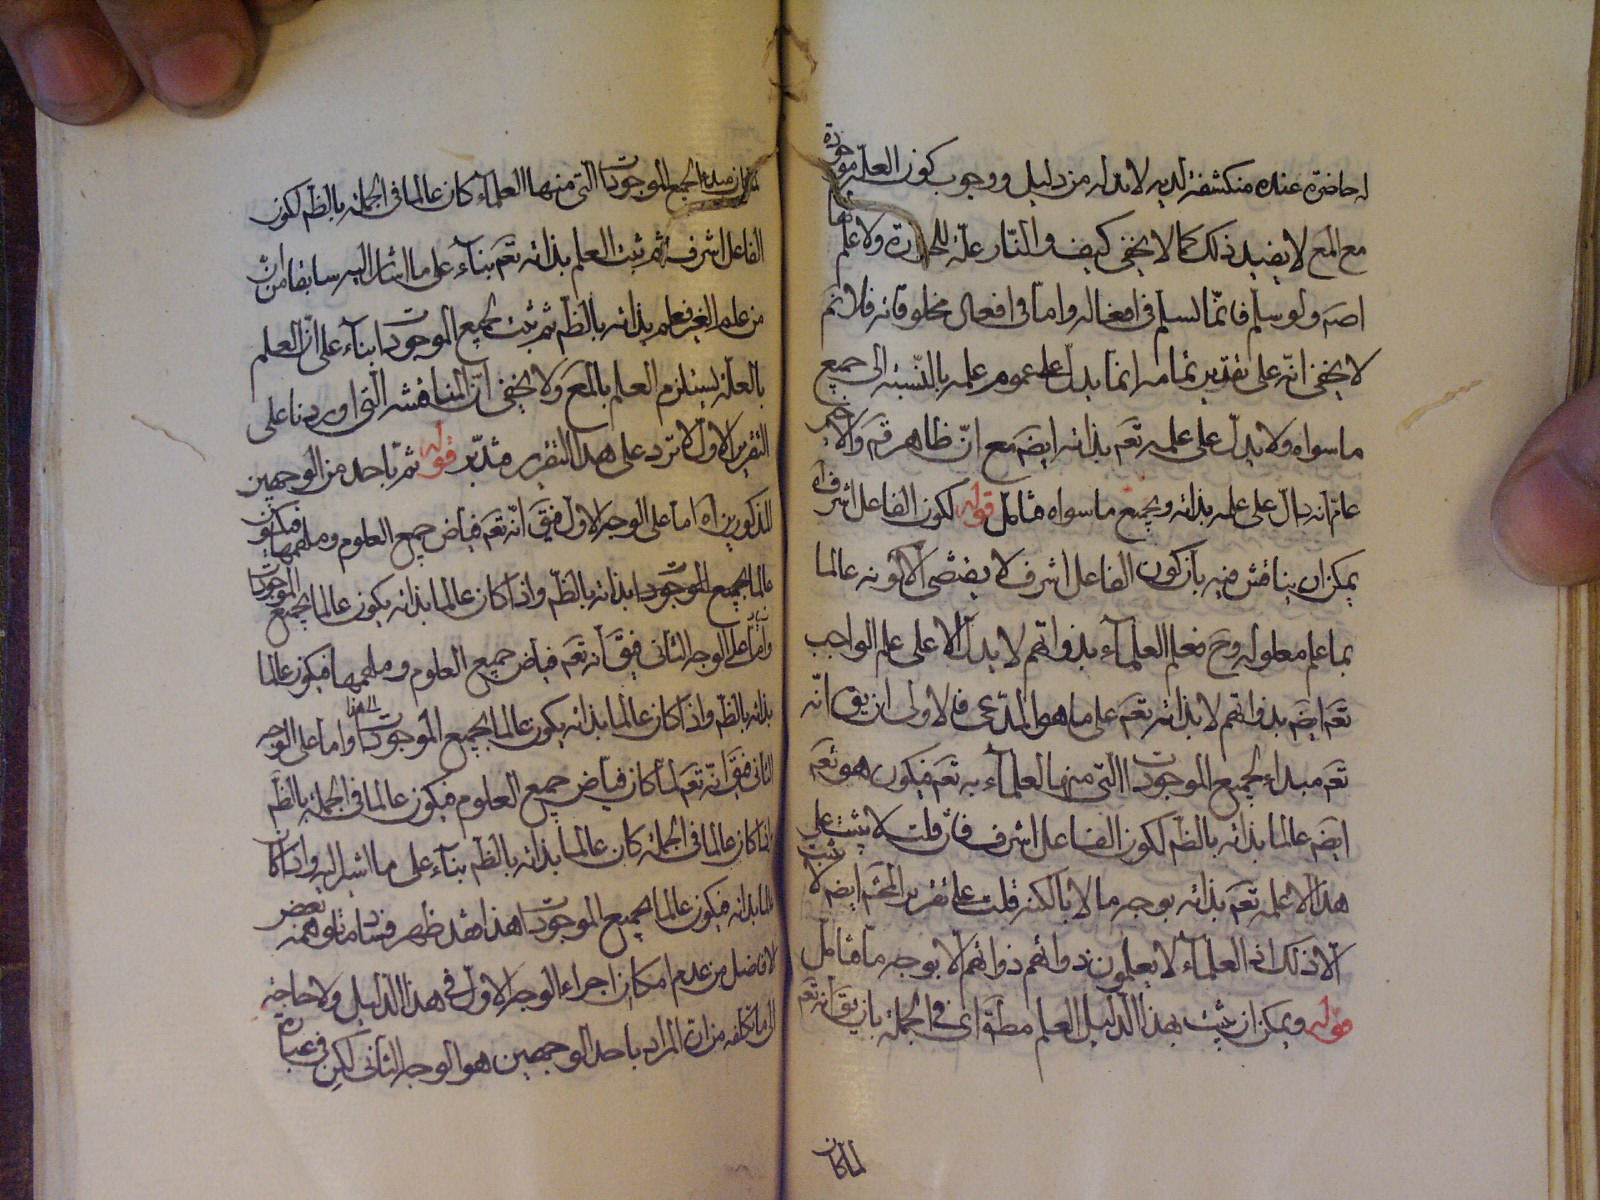 له حاضرة عنده منكشفة لديه لا بد له من دليل ووجوب كون العلة موجودة
مع المع لا يفيد ذلك كما لا يخفى كيف والنار علة للحرارة ولا علم لها
اصم ولو سلم فانما نسلم في افعاله واما في افعال مخلوقاته فلا ثم
لا يخفى انه على تقدير تمامه انما يدل على عموم علمه بالنسبة الى جميع
ما سواه ولا يدل على علمه تعم بذاته ايضم مع ان ظاهر
دال على علمه بذاته وبجميع ما سواه فتامل قوله لكون الفاعل اشرف اه
يمكن ان يناقش فيه بان كون الفاعل اشرف لا يقتضي الا كونه عالما
بما علم معلوله وح فعلم العلماء بذواتهم لا يدل الا على علم الواجب
تعم ايضم بذواتهم لا بذاته تعم على ما هو المدعى فالاولى ان يق انه
تعم مبداء لجميع الموجودات التي منها العلماء به تعم فيكون هو تعم
ايضم عالما بذاته بالظم لكون الفاعل اشرف فان قلت لا يثبت على
هذا الا علمه تعم بذاته بوجه ما لا بالكنه قلت على تقرير المحشم ايضم لا يثبت
الا ذلك اذ العلماء لا يعلمون ذواتهم الا بوجه ما فتامل
قوله ويمكن ان يثبت بهذا الدليل العلم مطم اى في الجملة بان يق انه تعم
لما كان
لما كان مبداء لجميع الموجودات التي منها العلماء كان عالما في الجملة بالظم لكون
الفاعل اشرف ثم ثبت العلم بذاته تعم بناء على ما اشار اليه سابقا من ان
من علم الغير فعلم بذاته بالظم ثم يثبت بجميع الموجودات بناء على ان العلم
بالعلة يستلزم العلم بالمعم ولا يخفى ان المناقشة التي اوردنا على
التقرير الاول لا ترد على هذا التقرير فتدبر قوله ثم باحد من الوجهين
المذكورين اه اما على الوجه الاول فيق انه تعم فياض جميع العلوم وملهمها فيكون
عالما بجميع الموجودات بذاته بالظم واذا كان عالما بذاته يكون عالما بجميع الموجودات
واما على الوجه الثاني فيق انه تعم فياض جميع العلوم وملهمها فيكون عالما
بذاته بالظم واذا كان عالما بذاته يكون عالما بجميع الموجودات واما على الوجه
الثاني فيق انه تعم لما كان فياض جميع العلوم فيكون عالما في الجملة بالظم
واذا كان عالما في الجملة كان عالما بذاته بالظم بناء على ما اشير اليه واذا كان
عالما بذاته فيكون عالما بجميع الموجودات هذا فقد ظهر فساد ما توهمه بعض
الافاضل من عدم امكان اجراء الوجه الاول في هذا الدليل ولا حاجة
الى ما تكلفه من ان المراد باحد الوجهين هو الوجه الثاني لكن في عبارة